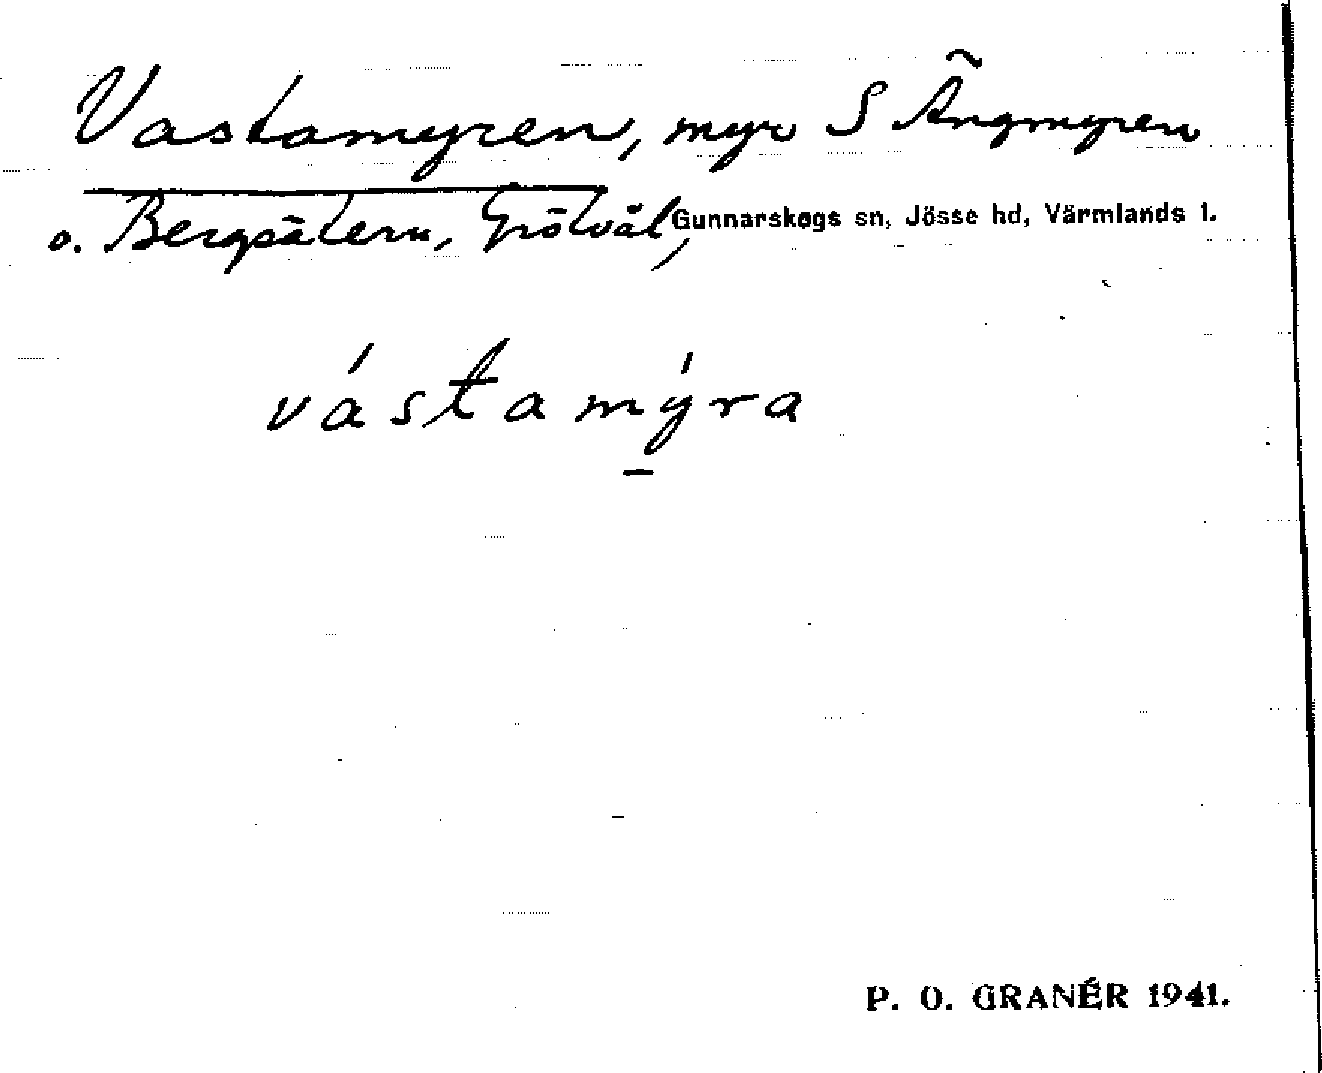 Vastamyren, myr S Ängmyren
o. Bergsätern, Grötvål, Gunnarskogs sn, Jösse hd, Värmlands l.
vástamýra
P. O. GRANÉR 1941.